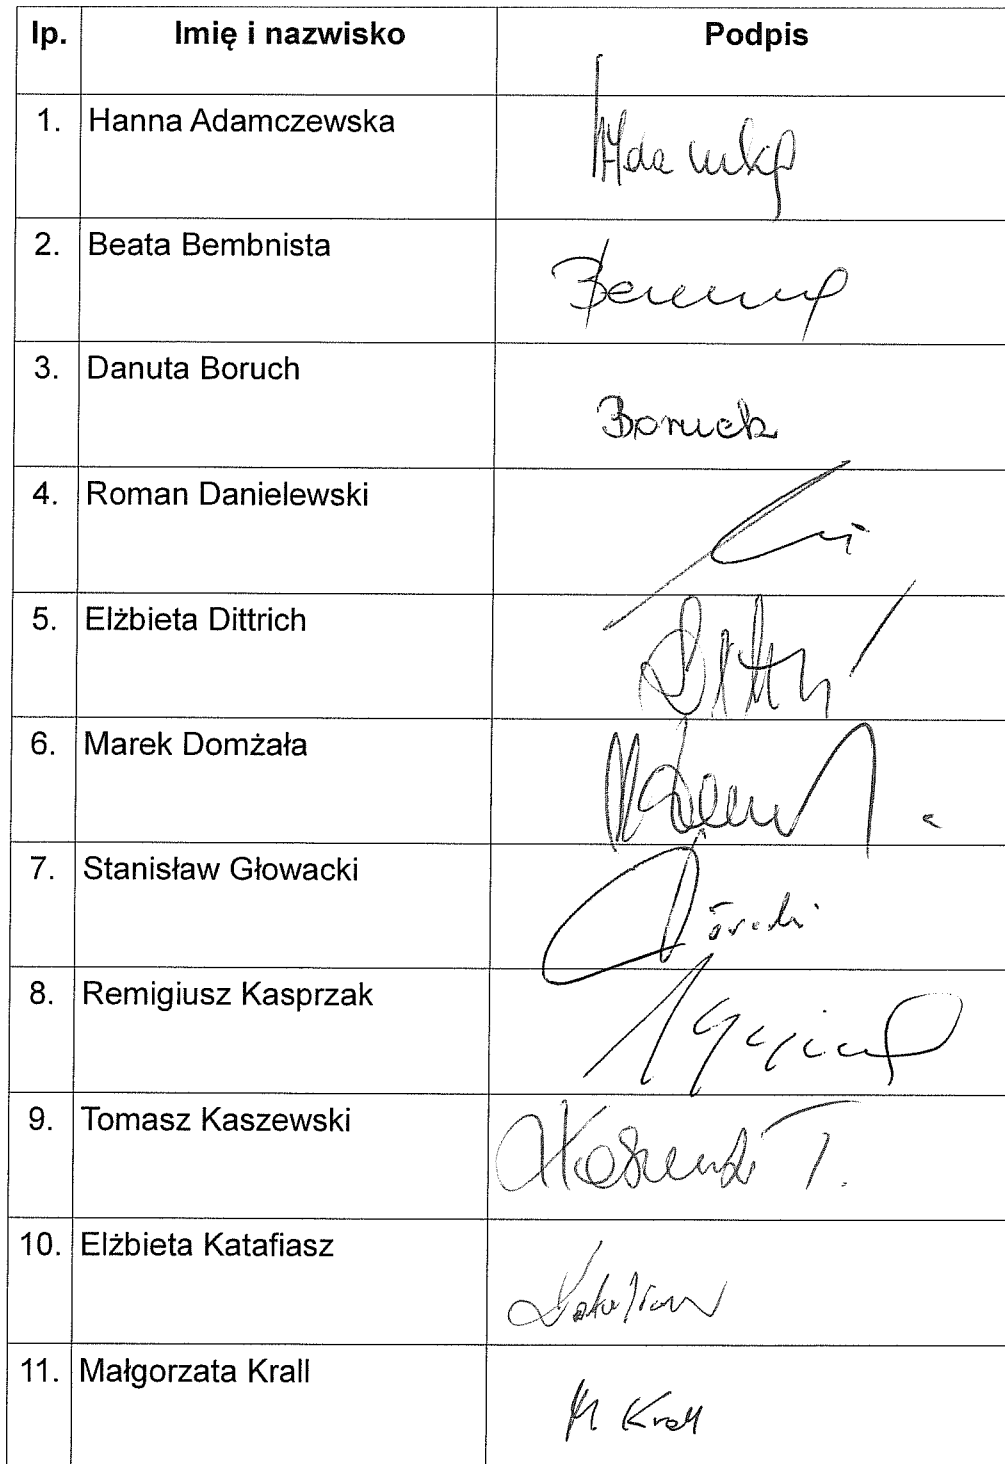 lp. Imię i nazwisko Podpis
1. Hanna Adamczewska
2. Beata Bembnista
3. Danuta Boruch Boruch
4. Roman Danielewski
5. Elżbieta Dittrich
6. Marek Domżała
7. Stanisław Głowacki
8. Remigiusz Kasprzak
9. Tomasz Kaszewski Kaszewski T.
10. Elżbieta Katafiasz
11. Małgorzata Krall M Krall